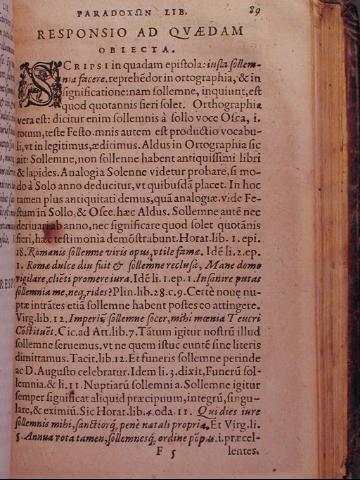 PARADOXΩN LIB. 89
RESPONSIO AD QVÆDAM
OBIECTA.
SCRIPSI in quadam epistola: iusta sollem-
nia facere. reprehẽdor in ortographia, & in
significatione: nam sollemne, inquiunt, est
quod quotannis fieri solet. Orthographia
vera est: dicitur enim sollemnis à sollo voce Osca, i.
totum, teste Festo. mnis autem est productio vocabu-
li, vt in legitimus, ædicimus. Aldus in Ortographia sic
ait: Sollemne, non sollenne habent antiquissimi libri
& lapides. Analogia Solenne videtur probare, si mo-
dò à Solo anno deducitur, vt quibusdã placet. In hoc
tamen plus antiquitati demus, quã analogiæ. vide Fe-
stum in Sollo, & Osce. hæc Aldus. Sollemne autẽ nec
deriuari ab anno, nec significare quod solet quotãnis
fieri, hæc testimonia demõstrabunt. Horat. lib. 1. epi.
18. Romanis sollemne viris opus, vtile famæ. Idẽ li. 2. ep.
1. Romæ dulce diu fuit & sollemne reclusa, Mane domo
vigilare, cliẽti promere iura. Idẽ li. 1. ep. 1. Insanire putas
sollemnia me, neq; rides? Plin. lib. 28. c. 9. Certè nouę nu-
ptæ intrãtes etiã sollemne habent postes eo attingere.
Virg. lib. 12. Imperiũ sollemne socer, mihi mœnia Teucri
Cõstituẽt. Cic. ad Att. lib. 7. Tãtum igitur nostrũ illud
sollemne seruemus, vt ne quem istuc euntẽ sine literis
dimittamus. Tacit. lib. 12. Et funeris sollemne perinde
ac D. Augusto celebratur. Idem li. 3. dixit, Funerũ sol-
lemnia. & li. 11. Nuptiarũ sollemnia. Sollemne igitur
semper significat aliquid præcipuum, integrũ, singu-
lare, & eximiũ. Sic Horat. lib. 4. oda 11. Qui dies iure
sollemnis mihi, sanctiorq; penè natali proprio. Et Virg. li.
5. Annua vota tamen, sollemnesq; ordine põpas. i. præcel-
F 5 lentes.